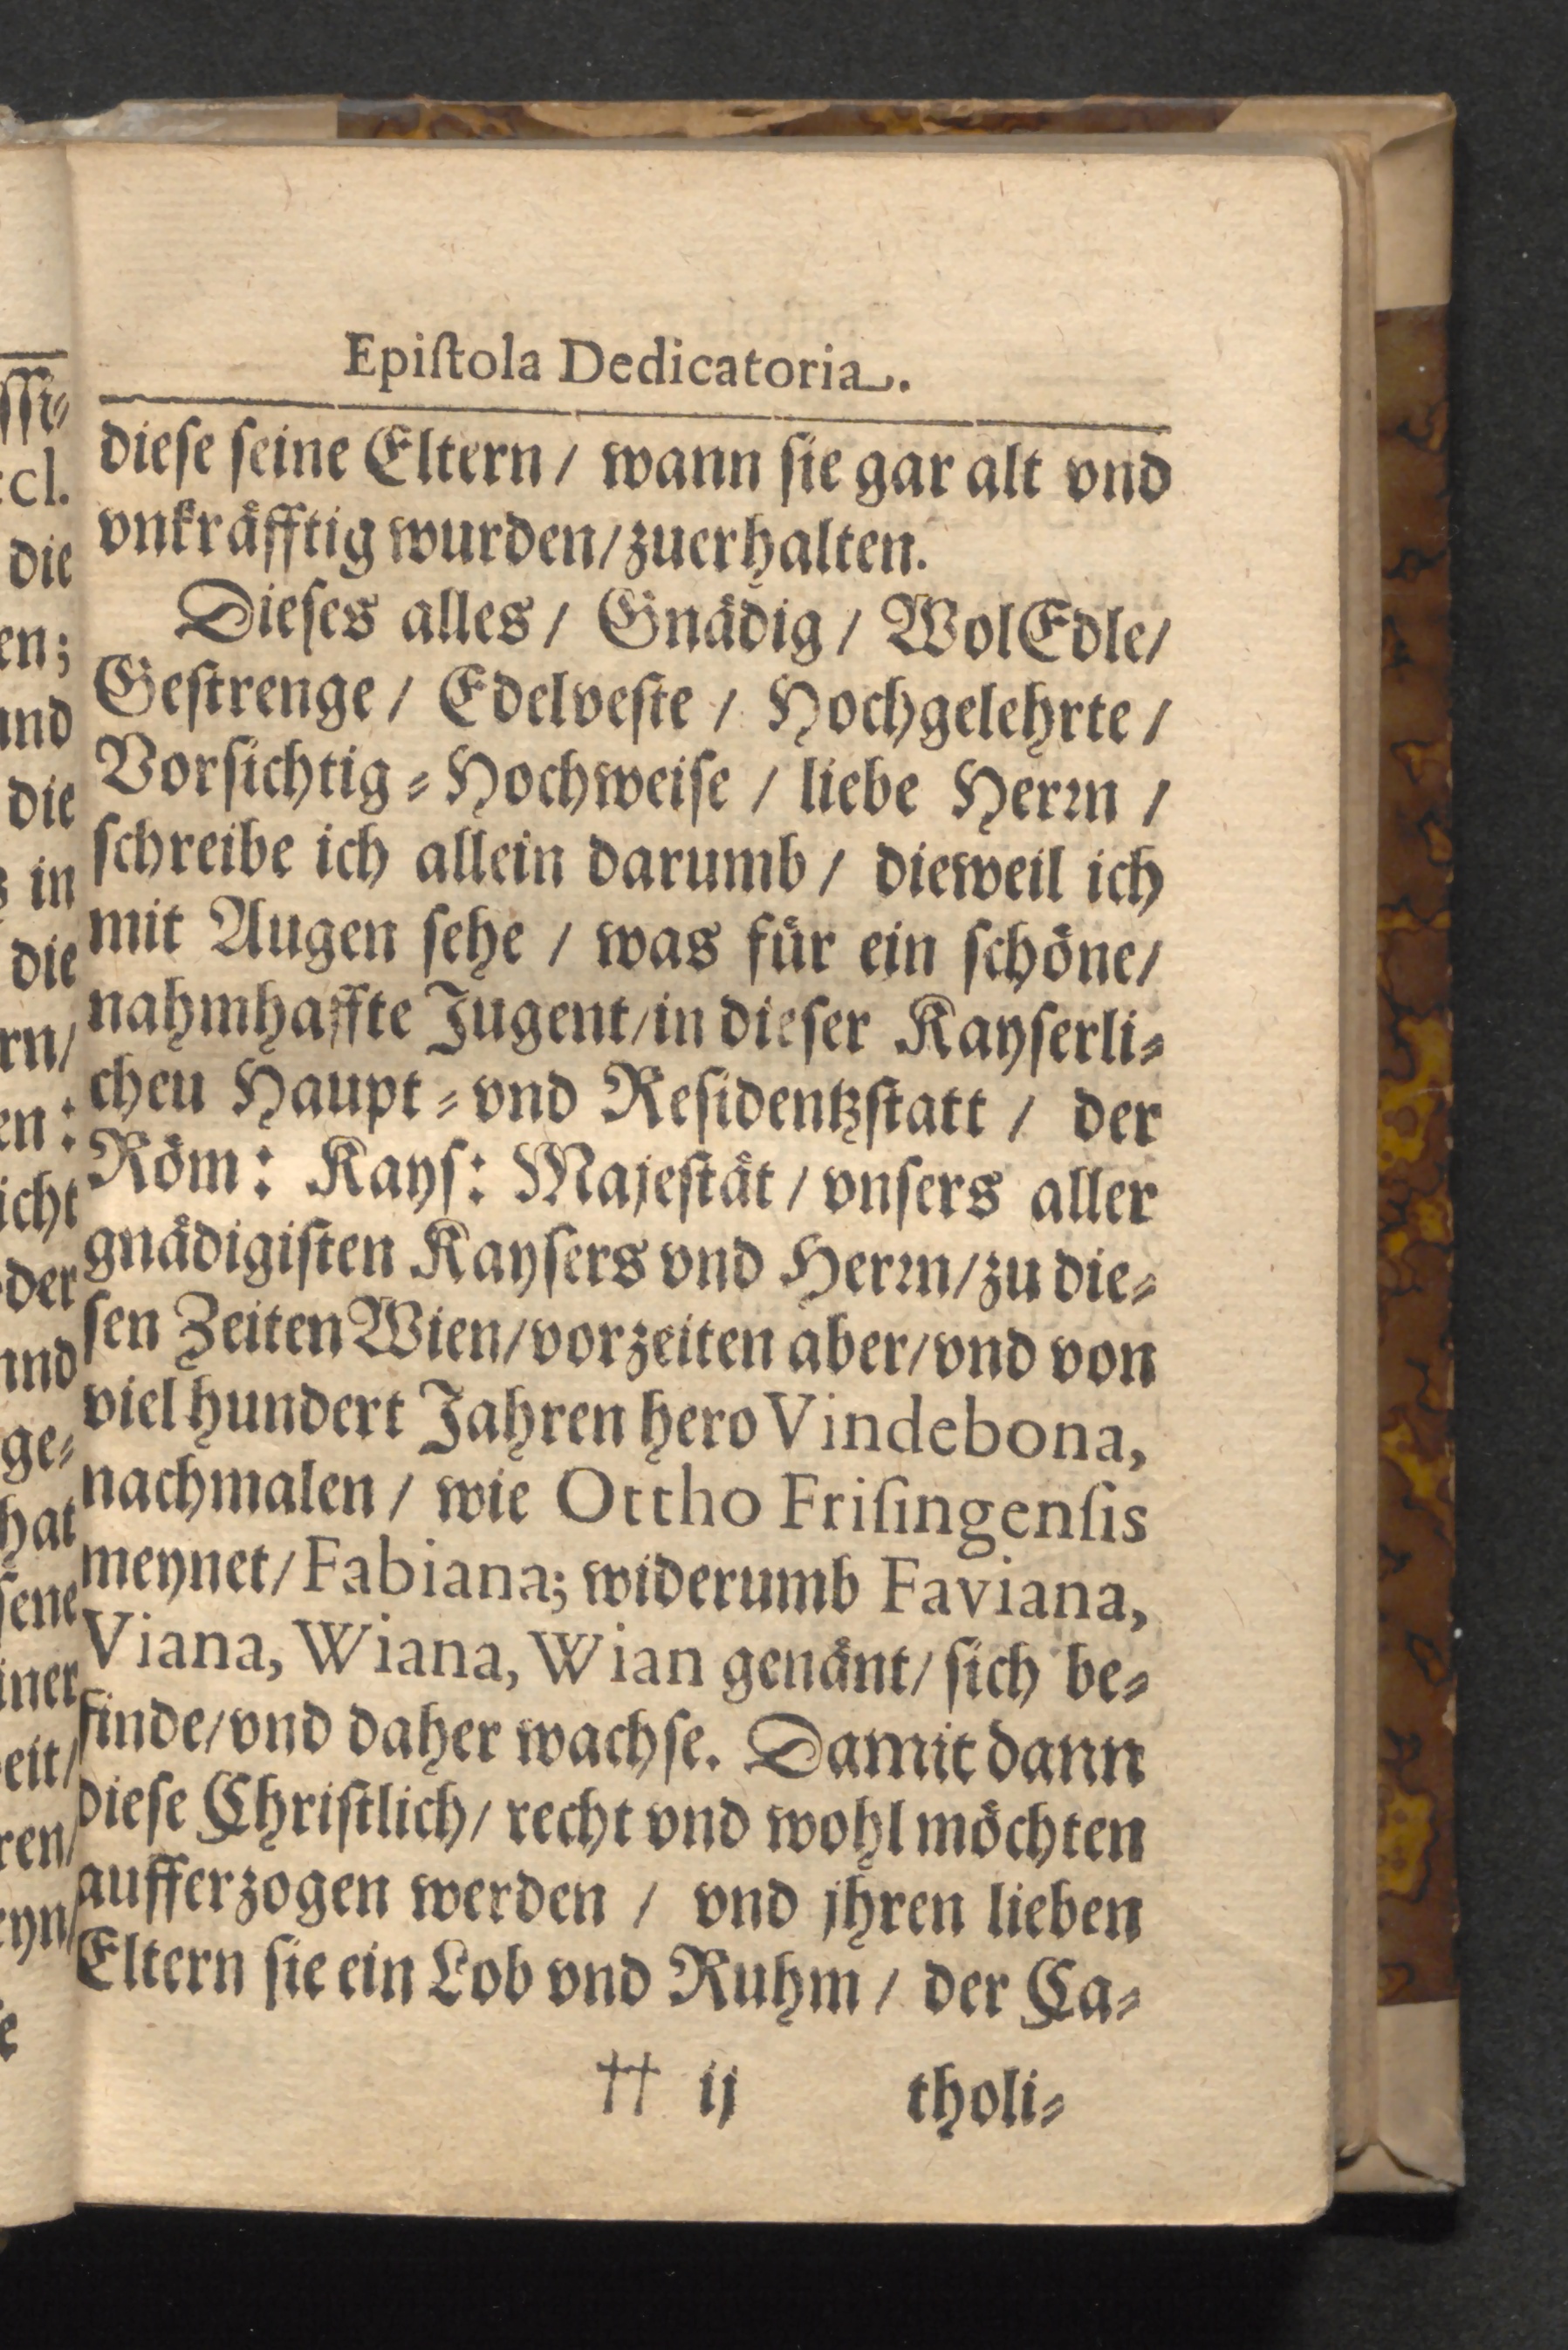 Epiſtola Dedicatoria.
dieſe ſeine Eltern / wann ſie gar alt vnd
vnkråfftig wurden/zuerhalten.
Dieſes alles / Gnådig / WolEdle/
Geſtrenge / Edelveſte / Hochgelehrte /
Vorſichtig-Hochweiſe / liebe Herꝛn /
ſchreibe ich allein darumb / dieweil ich
mit Augen ſehe / was fuͤr ein ſchoͤne/
nahmhaffte Jugent/in dieſer Kayſerli-
cheu Haupt-vnd Reſidentzſtatt / der
Roͤm: Kayſ: Majeſtåt / vnſers aller
gnådigiſten Kayſers vnd Herꝛn/zu die-
ſen Zeiten Wien/vorzeiten aber/vnd von
viel hundert Jahren hero Vindebona,
nachmalen / wie Ottho Friſingenſis
meynet/Fabiana; widerumb Faviana,
Viana, Wiana, Wian genånt/ ſich be-
finde/vnd daher wachſe. Damit dann
dieſe Chriſtlich/ recht vnd wohl moͤchten
aufferzogen werden / vnd jhren lieben
Eltern ſie ein Lob vnd Ruhm / der Ca-
†† ij tholi-